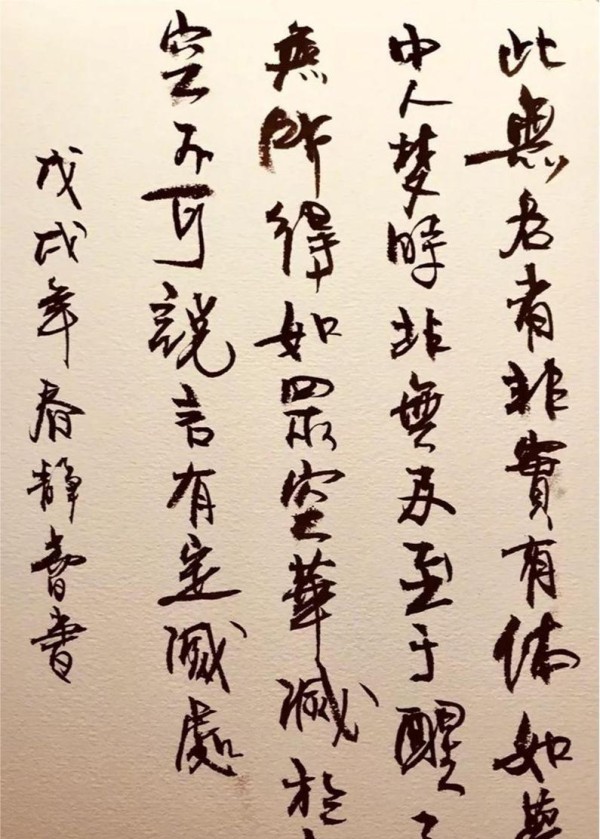 此無名者非實有体如夢
中人梦時非無及至于醒了
無所得如眾空華滅於
空不可說言有定滅處
戊戌年春靜書